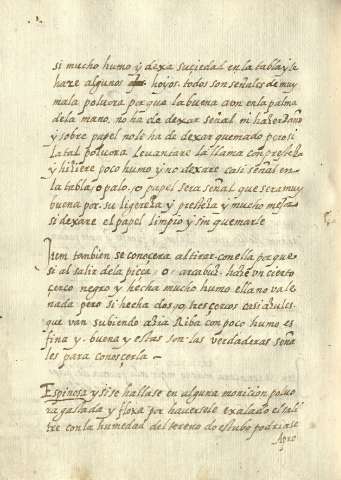 si mucho humo y dexa suçiedad en la tabla y le
haze algunos hoyos. todos son señales de muy
mala poluora porque la buena aun en la palma
de la mano, no ha de dexar señal ni hazer daño
y sobre papel no le ha de dexar quemado pero si
la tal poluora. Leuantare la llama con presteza
y hiziere poco humo y no dexare casi señal en
la tabla, o palo, o papel sera señal que sera muy
buena por su ligereza y presteza y mucho mejor
si dexare el papel limpio y sin quemarle
Item tambien se conocera al tirar con ella porque
si al salir de la pieça o arcabuz haze un cierto
çerco negro y hecha mucho humo ella no vale
nada pero si hecha dos o tres çercos casi azules
que van subiendo azia Riba con poco humo es
fina y buena y estas son las verdaderas seña
les para conosçerla
Espinosa y si se hallase en alguna moniçion poluo
ra gastada y floxa por hauersele exalado el sali
tre con la humedad del terreno do estubo podriase
Apro